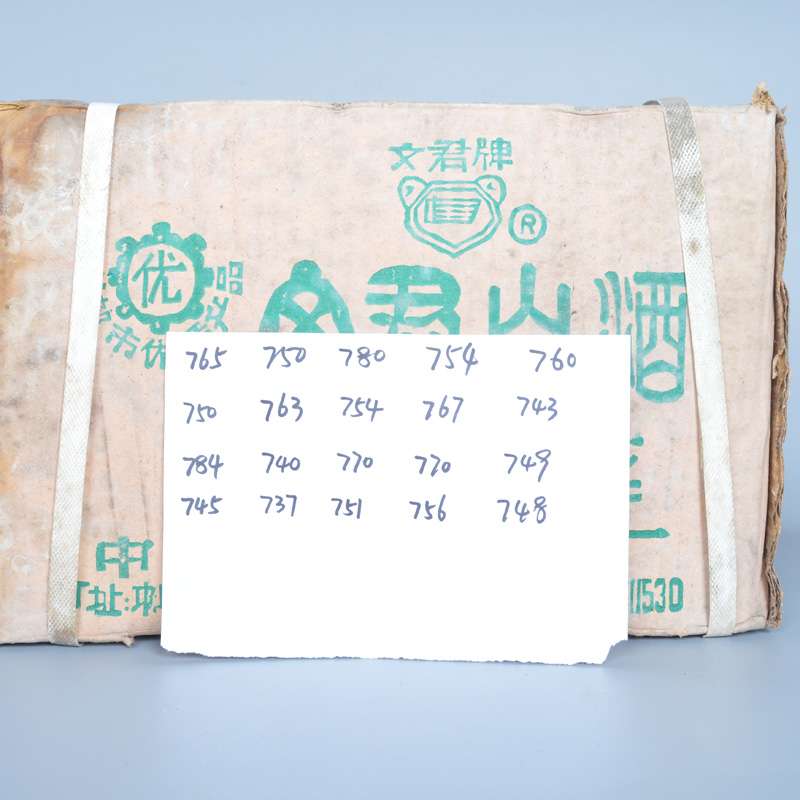 文君牌
R
优
品
市优
文君山酒
765 750 780 754 760
750 763 754 767 743
784 740 770 770 749
745 737 751 756 748
中
址:
11530